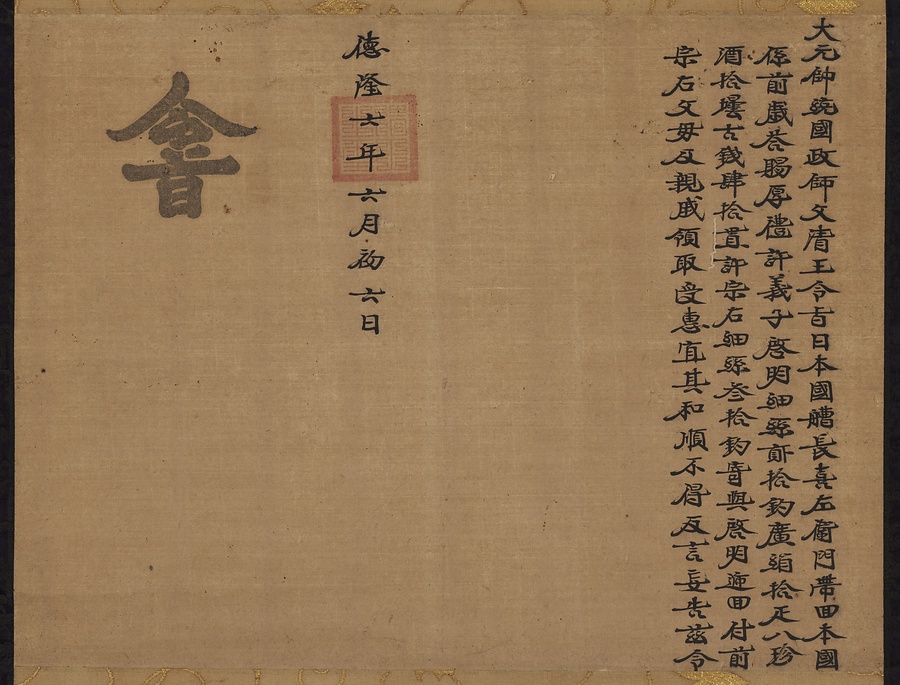 大元帥統國政師父清王令旨日本國艚長喜左衛門帶回本國
係前歲答賜厚禮許義子啓明細絲貳拾鈞廣絹拾疋八珍
酒拾壜古錢肆拾貫許宗右細絲叁拾鈞寄與啓明回付前
宗右父母及親戚領取受惠宜其和順不得反言妄告茲令
德隆六年六月初六日
令旨